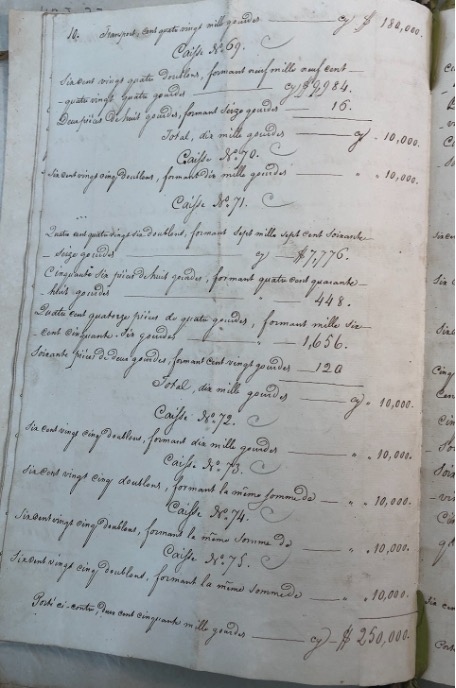 10. Transport, cent quatre vingt mille gourdes — cy $ 180,000.
Caisse No. 69.
Six cent vingt quatre doublons, formant neuf mille neuf cent
quatre vingt quatre gourdes — cy $ 9,984.
Deux pièces de huit gourdes, formant seize gourdes — 16.
Total, dix mille gourdes — cy " 10,000.
Caisse No. 70.
Six cent vingt cinq doublons, formant dix mille gourdes — " " 10,000.
Caisse No. 71.
Quatre cent quatre vingt six doublons, formant sept mille sept cent soixante
seize gourdes — cy — $ 7,776.
Cinquante six pièces de huit gourdes, formant quatre cent quarante
huit gourdes — " — 448.
Quatre cent quatorze pièces de quatre gourdes, formant mille six
cent cinquante six gourdes — " — 1,656.
Soixante pièces de deux gourdes, formant cent vingt gourdes — 120
Total, dix mille gourdes — cy " 10,000.
Caisse No. 72.
Six cent vingt cinq doublons, formant dix mille gourdes — " " 10,000.
Caisse No. 73.
Six cent vingt cinq doublons, formant la même somme de — " " 10,000.
Caisse No. 74.
Six cent vingt cinq doublons, formant la même somme de — " " 10,000.
Caisse No. 75.
Six cent vingt cinq doublons, formant la même somme de — " " 10,000.
Porté ci-contre deux cent cinquante mille gourdes — cy — $ 250,000.